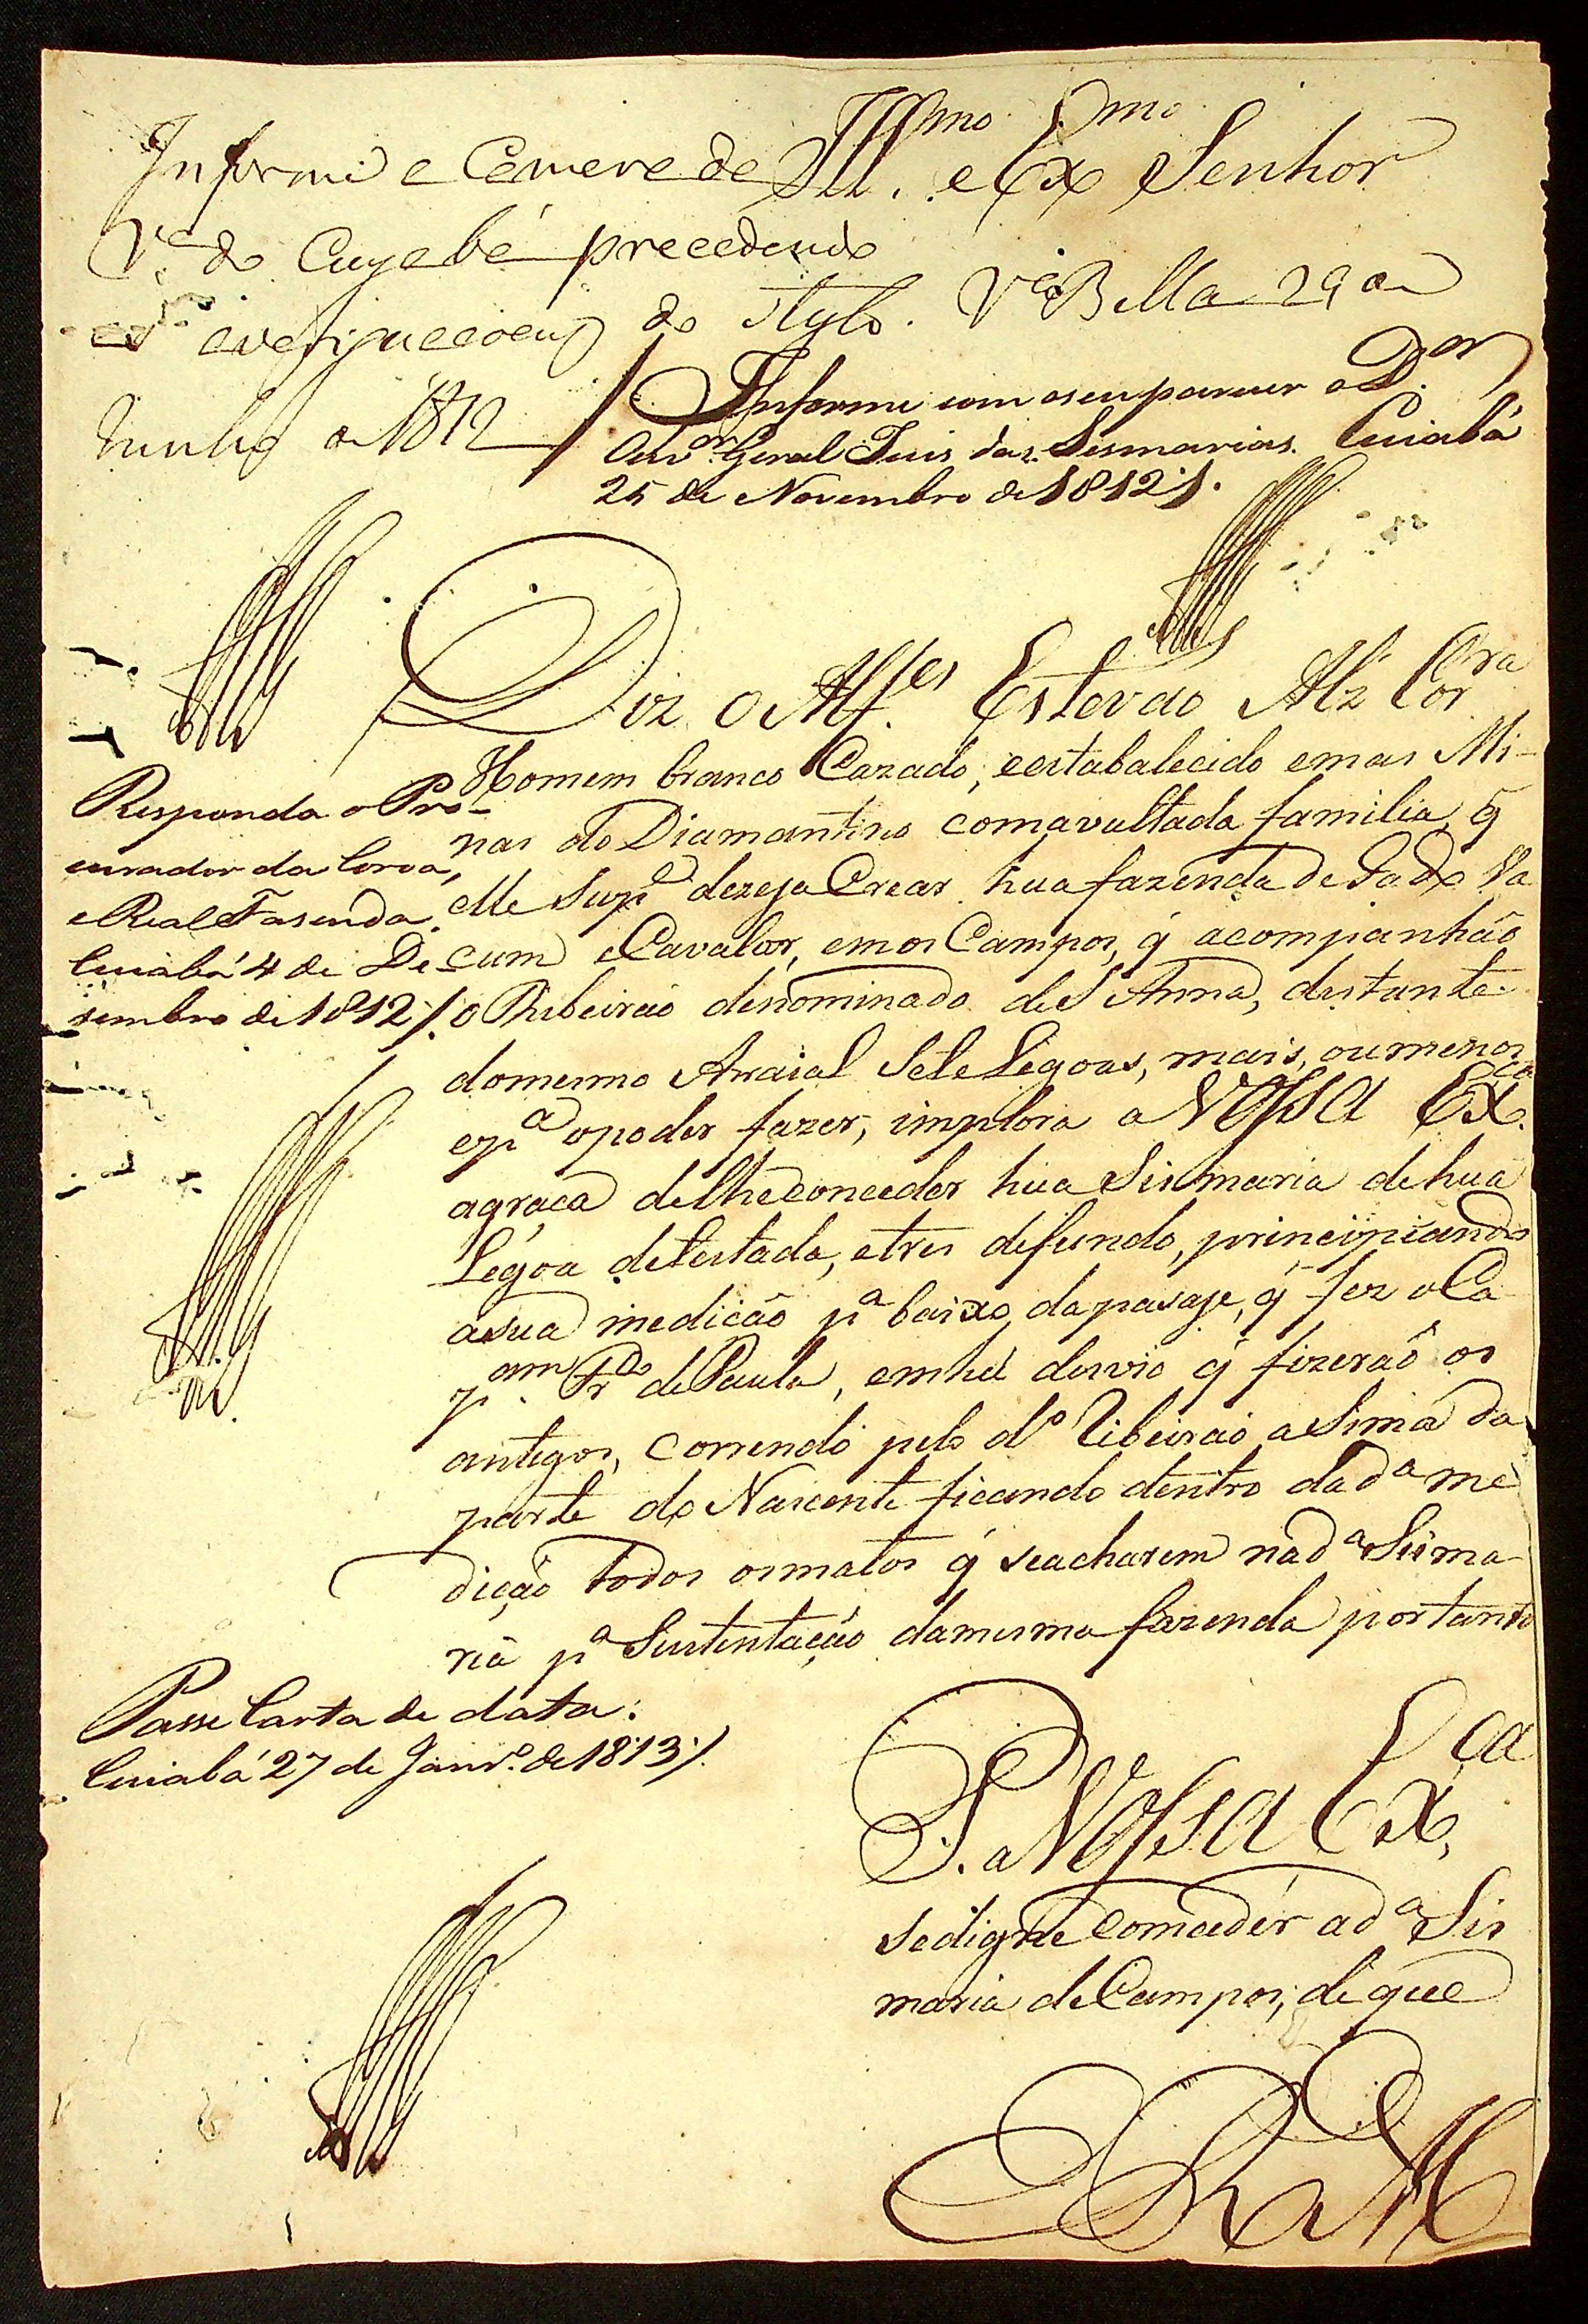 Ill.mo e Ex.mo Senhor
Informe a Camara da
V.a do Cuyabá precedendo
as averiguacoens do stylo. V.a Bella 29 de
Junho de 1812
Informe com o seu parecer o D.or
Ouv.or Geral Juis das Sesmarias. Cuiabá
25 de Novembro de 1812
Diz o Alf.es Estevao Alz Cor.ra
Homem branco Cazado, e estabalecido em as Mi-
nas do Diamantino com avultada familia, q̃
elle Sup.e dezeja Crear hua fazenda de Gado Va
cum e Cavalar, em os Campos, q̃ acompanhão
o Ribeirão denominado de S Anna, distante
do mesmo Arraial Sete Legoas, mais, ou menos
e p.a o poder fazer, implora a Vossa Ex.ca
a graça de lhe conceder hua Sismaria de hua
Legoa de testada, e tres de fundo, principiando
a sua medicão p.a baixo, da pasaje, q̃ fez o Ca
p.am Fr.co de Paula, em hũ desvio q̃ fizerão os
antigos, correndo pelo d.o Ribeirão a Sima da
parte do Nascente ficando dentro da d.a me
dição todos os matos q̃ se acharem na d.a Sisma-
ria p.a Sustentação da mesma fazenda portanto
P. a Vossa Ex.ca
se digne comceder a d.a Sis
maria de Campos, de que
E R M
Responda o Pro-
curador da Coroa,
e Real Fasenda.
Cuiabá 4 de De
sembro de 1812
Passe Carta de data.
Cuiabá 27 de Janr.o de 1813